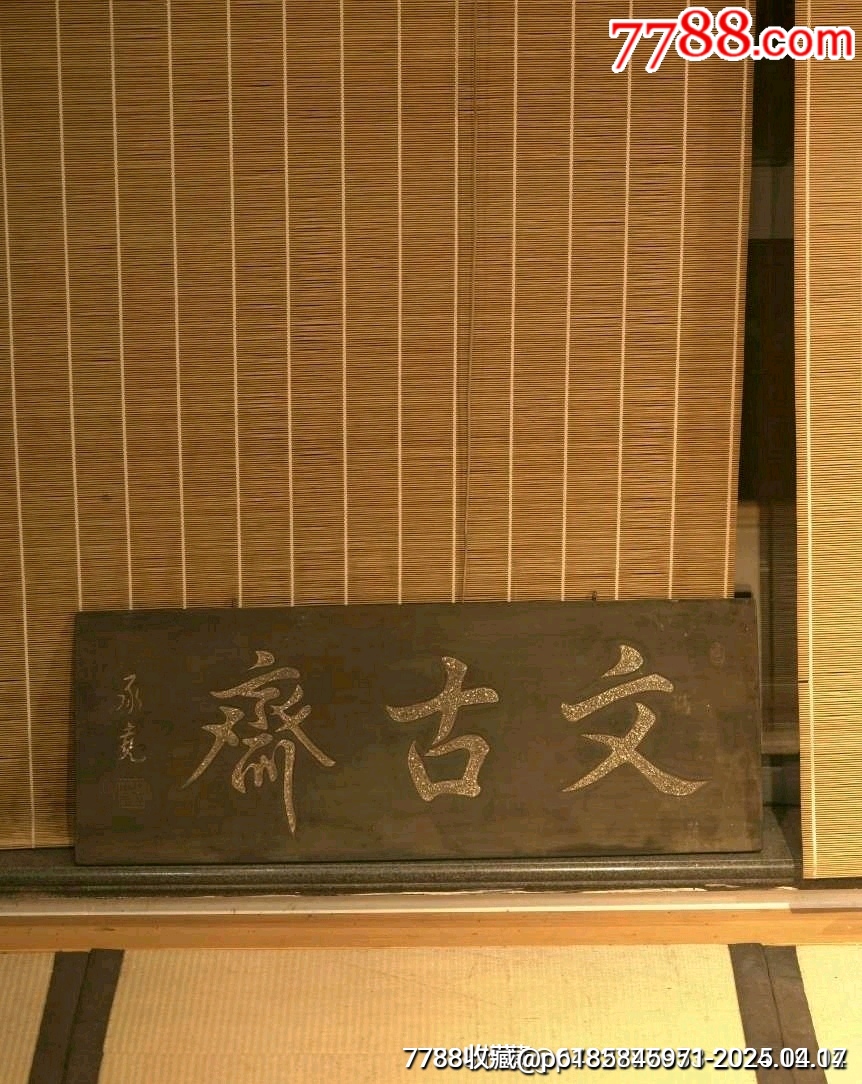 7788.com
文古齋
承堯
7788收藏@p6185846971-2025.04.14